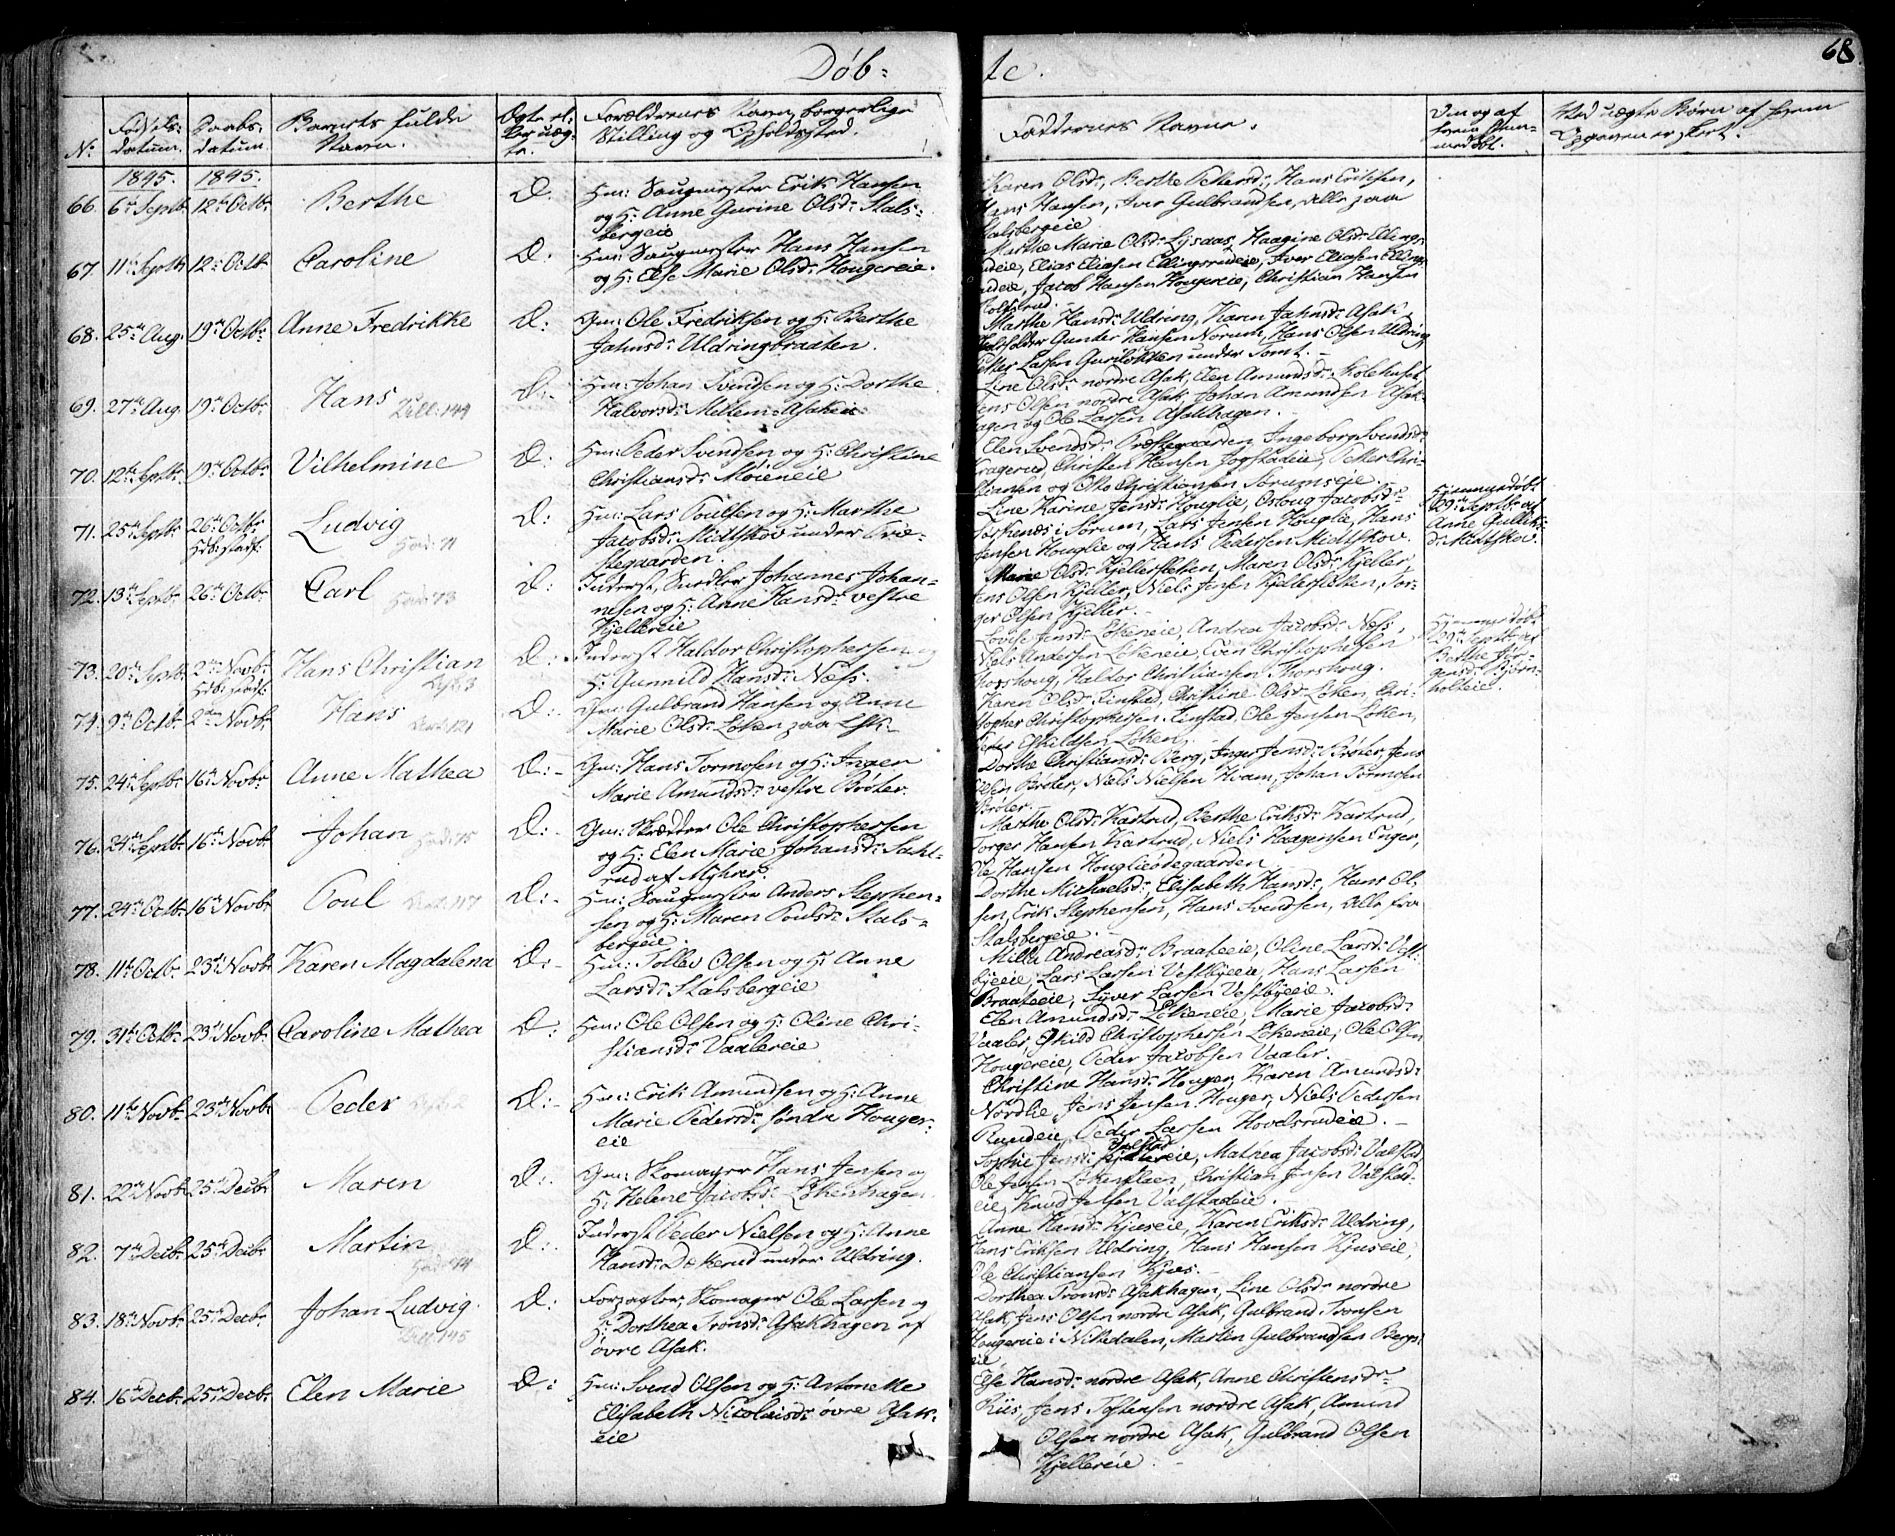 68
Døb- te.
No
Fødsels-
datum.
Daabs-
datum.
Barnets fulde
Navn.
Ægte el-
ler uæg-
te.
Forældrenes Navn, borgerlige
Stilling og Opholdssted.
Faddernes Navne.
Om og af
hvem hjem-
medøbt.
Ved uægte Børn af hvem
Opgaven er skeet.
1845. 1845.
66. 6te Septbr 12te Octbr Berthe Æ.
Hm: Saugmester Erik Hansen
og H: Anne Gurine Olsdr Stals-
bergeie
Karen Olsdr, Berthe Pettersdr, Hans Eriksen,
Hans Hansen, Iver Gulbrandsen, alle paa
Stalsbergeie
67. 11te Septbr 12te Octbr Caroline Æ.
Hm: Saugmester Hans Hansen
og H: Else Marie Olsdr Hougereie.
Marthe Marie Olsdr Lysaas, Haagine Olsdr Ellings-
rudeie, Elias Eliasen Ellingsrudeie, Iver Eliasen Ellings-
rudeie, Jacob Hansen Hougereie, Christian Hansen
68. 25de Aug. 19de Octbr Anne Fredrikke Æ:
Gm: Ole Fredriksen og H: Berthe
Jahnsdr Uldringbraaten.
Marthe Hansdr Uldring, Karen Jahnsdr Asak,
Gunder Hansen Norum, Hans Olsen Uldring
Petter Larsen under Tomt.
69. 27de Aug. 19de Octbr Hans Æ:
Hm: Johan Svendsen og H: Dorthe
Halvorsdr Mellem-Asakeie
Line Olsdr nordre Asak, Elen Amundsdr Skolehuset,
Jens Olsen nordre Asak, Johan Amundsen Asak-
hagen og Ole Larsen Asakhagen.
70. 12te Septbr 19de Octbr Vilhelmine Æ:
Hm: Peder Svendsen og H: Christine
Christiansdr Moieneie
Elen Svendsdr Præstegaarden, Ingeborg Svendsdr
Kragerud, Christen Hansen Jogstadeie, Petter Chri-
stiansen og Otto Christiansen Sørumseie.
71. 25de Septbr 26de Octbr
Hdb: stadf:
Ludvig Æ:
Hm: Lars Poulsen og H: Marthe
Jacobsdr Midtskov under Præ-
stegaarden.
Line Karine Jensdr Houglie, Osloug Jacobsdr
i Sørum, Lars Jensen Houglie, Hans
Jensen Houglie og Hans Pedersen Midtskov.
Hjemmedøbt
29de Septbr af
Anne Gulliks-
dr Midtskov.
72. 13de Septbr 26de Octbr Carl Æ:
Inderst, Johannes Johan-
nesen og H: Anne Hansdr vestre
Kjellereie
Marie Olsdr Kjellersletten, Maren Olsdr Kjeller,
Jens Olsen Kjeller, Niels Jensen Kjellersletten, Tor-
ger Olsen Kjeller.
73. 20de Septbr 2den Novbr
Hdb: stadf:
Hans Christian Æ:
Inderst Haldor Christophersen og
H: Gunnild Hansdr Næss.
Lovise Jensdr Løkeneie, Andrea Jacobsdr Næss,
Niels Andersen Løkeneie, Christophersen
Thorshoug, Haldor Christiansen Thorshoug.
Hjemmedøbt
29de Septbr af
Berthe Jør-
gensdr Bjørn-
holteie.
74. 9de Octbr 2den Novbr Hans Æ:
Gm: Gulbrand Hansen og Anne
Marie Olsdr Løken paa Eje
Karen Olsdr Finstad, Christine Olsdr Løken, Chri-
stopher Christophersen Finstad, Ole Jensen Løken,
Peder Eskildsen Løken.
75. 24de Septbr 16de Novbr Anne Mathea Æ:
Gm: Hans Tormosen og H: Inger
Marie Amundsdr vestre Brøter.
Dorthe Christiansdr Berg, Inger Jensdr Brøter, Jens
Olsen Brøter, Niels Nielsen Kvam, Johan Tormosen
Brøter.
76. 24de Septbr 16de Novbr Johan Æ:
Gm: Skrædder Ole Christophersen
og H: Elen Marie Johansdr
rud af Myhrer.
Marthe Olsdr Kartrud, Berthe Eriksdr Kartrud,
Torger Hansen Kartrud, Niels Haagensen Enger,
Ole Hansen Houglieødegaarden
77. 24de Octbr 16de Novbr Poul Æ:
Hm: Saugmester Anders Stephen-
sen og H: Maren Poulsdr Stals-
bergeie.
Dorthe Michaelsdr, Elisabeth Hansdr, Hans Ol-
sen, Erik Stephensen, Hans Svendsen, alle fra
Stalsbergeie.
78. 11te Octbr 23de Novbr Karen Magdalena Æ:
Hm: Tollev Olsen og H: Anne
Larsdr Stalsbergeie
Mille Andreasdr Braateeie, Oline Larsdr Vest-
byeeie, Lars Larsen Vestbyeeie, Hans Larsen
Braateeie, Syver Larsen Vestbyeeie.
79. 31te Octbr 23de Novbr Caroline Mathea Æ:
Hm: Ole Olsen og H: Oline Chri-
stiansdr Vaalereie
Elen Amundsdr Løkeneie, Marie Jacobsdr
Vaaler, Eskild Christophersen Løkeneie, Ole Olsen
Hougereie, Peder Jacobsen Vaaler.
80. 11te Novbr 23de Novbr Peder Æ:
Hm: Erik Amundsen og H: Anne
Marie Pedersdr søndre Houger-
eie
Christine Hansdr Houger, Karen Amundsdr
Nordlie, Jens Jensen Houger, Niels Pedersen
Rundeie, Peder Larsen Hovdsrudeie.
81. 22de Novbr 25de Decbr Maren Æ:
Gm: Skomager Hans Jensen og
H: Helene Jacobsdr Løkenhagen
Sophie Jensdr Valstadeie, Mathea Jacobsdr Valstad
Ole Jensen Løkenflaen, Christian Jensen Valstad-
eie, Knud Jensen Valstadeie.
82. 7de Decbr 25de Decbr Martin Æ:
Inderst Peder Nielsen og H: Anne
Hansdr under Uldring.
Anne Hansdr Kjuseie, Karen Eriksdr Uldring,
Hans Eriksen Uldring, Hans Hansen Kjuseie,
Ole Christiansen Kjus.
83. 18de Novbr 25de Decbr Johan Ludvig Æ:
Forpagter, Skomager Ole Larsen og
H: Dorthea Tronsdr Asakhagen af
øvre Asak.
Dorthea Tronsdr Asakhagen, Line Olsdr nordre
Asak, Jens Olsen nordre Asak, Gulbrand Tronsen
Hougereie i Nittedalen, Martin Gulbrandsen Bergs-
eie
84. 16de Decbr 25de Decbr Elen Marie Æ:
Hm: Svend Olsen og H: Antonette
Elisabeth Nicolaisdr øvre Asak-
eie
Else Hansdr nordre Asak, Anne Christensdr
Riis, Jens Tostensen nordre Asak, Amund
Olsen nordre Asak, Gulbrand Olsen
Kjellereie.